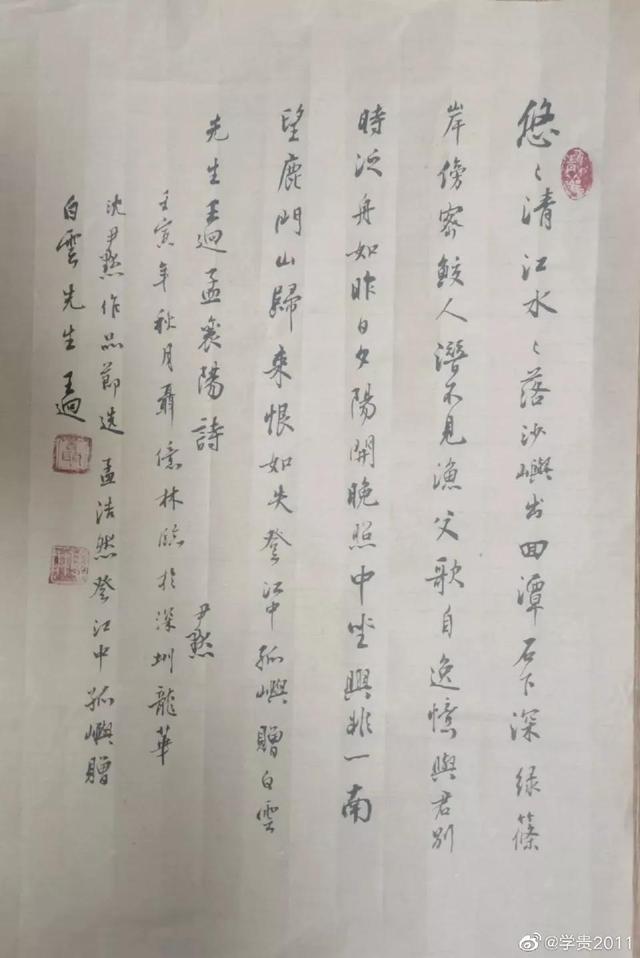 悠〻清江水〻落沙嶼出回潭石下深绿篠
岸傍密鲛人潛不見漁父歌自逸憶與君别
時泛舟如昨日夕陽開晚照中坐興非一南
望鹿門山歸来恨如失登江中孤嶼贈白雲
先生王迥孟襄陽詩 尹默
壬寅年秋月聶億林臨於深圳龍華
沈尹默作品節选 孟浩然登江中孤嶼贈
白雲先生王迥
@学贵2011